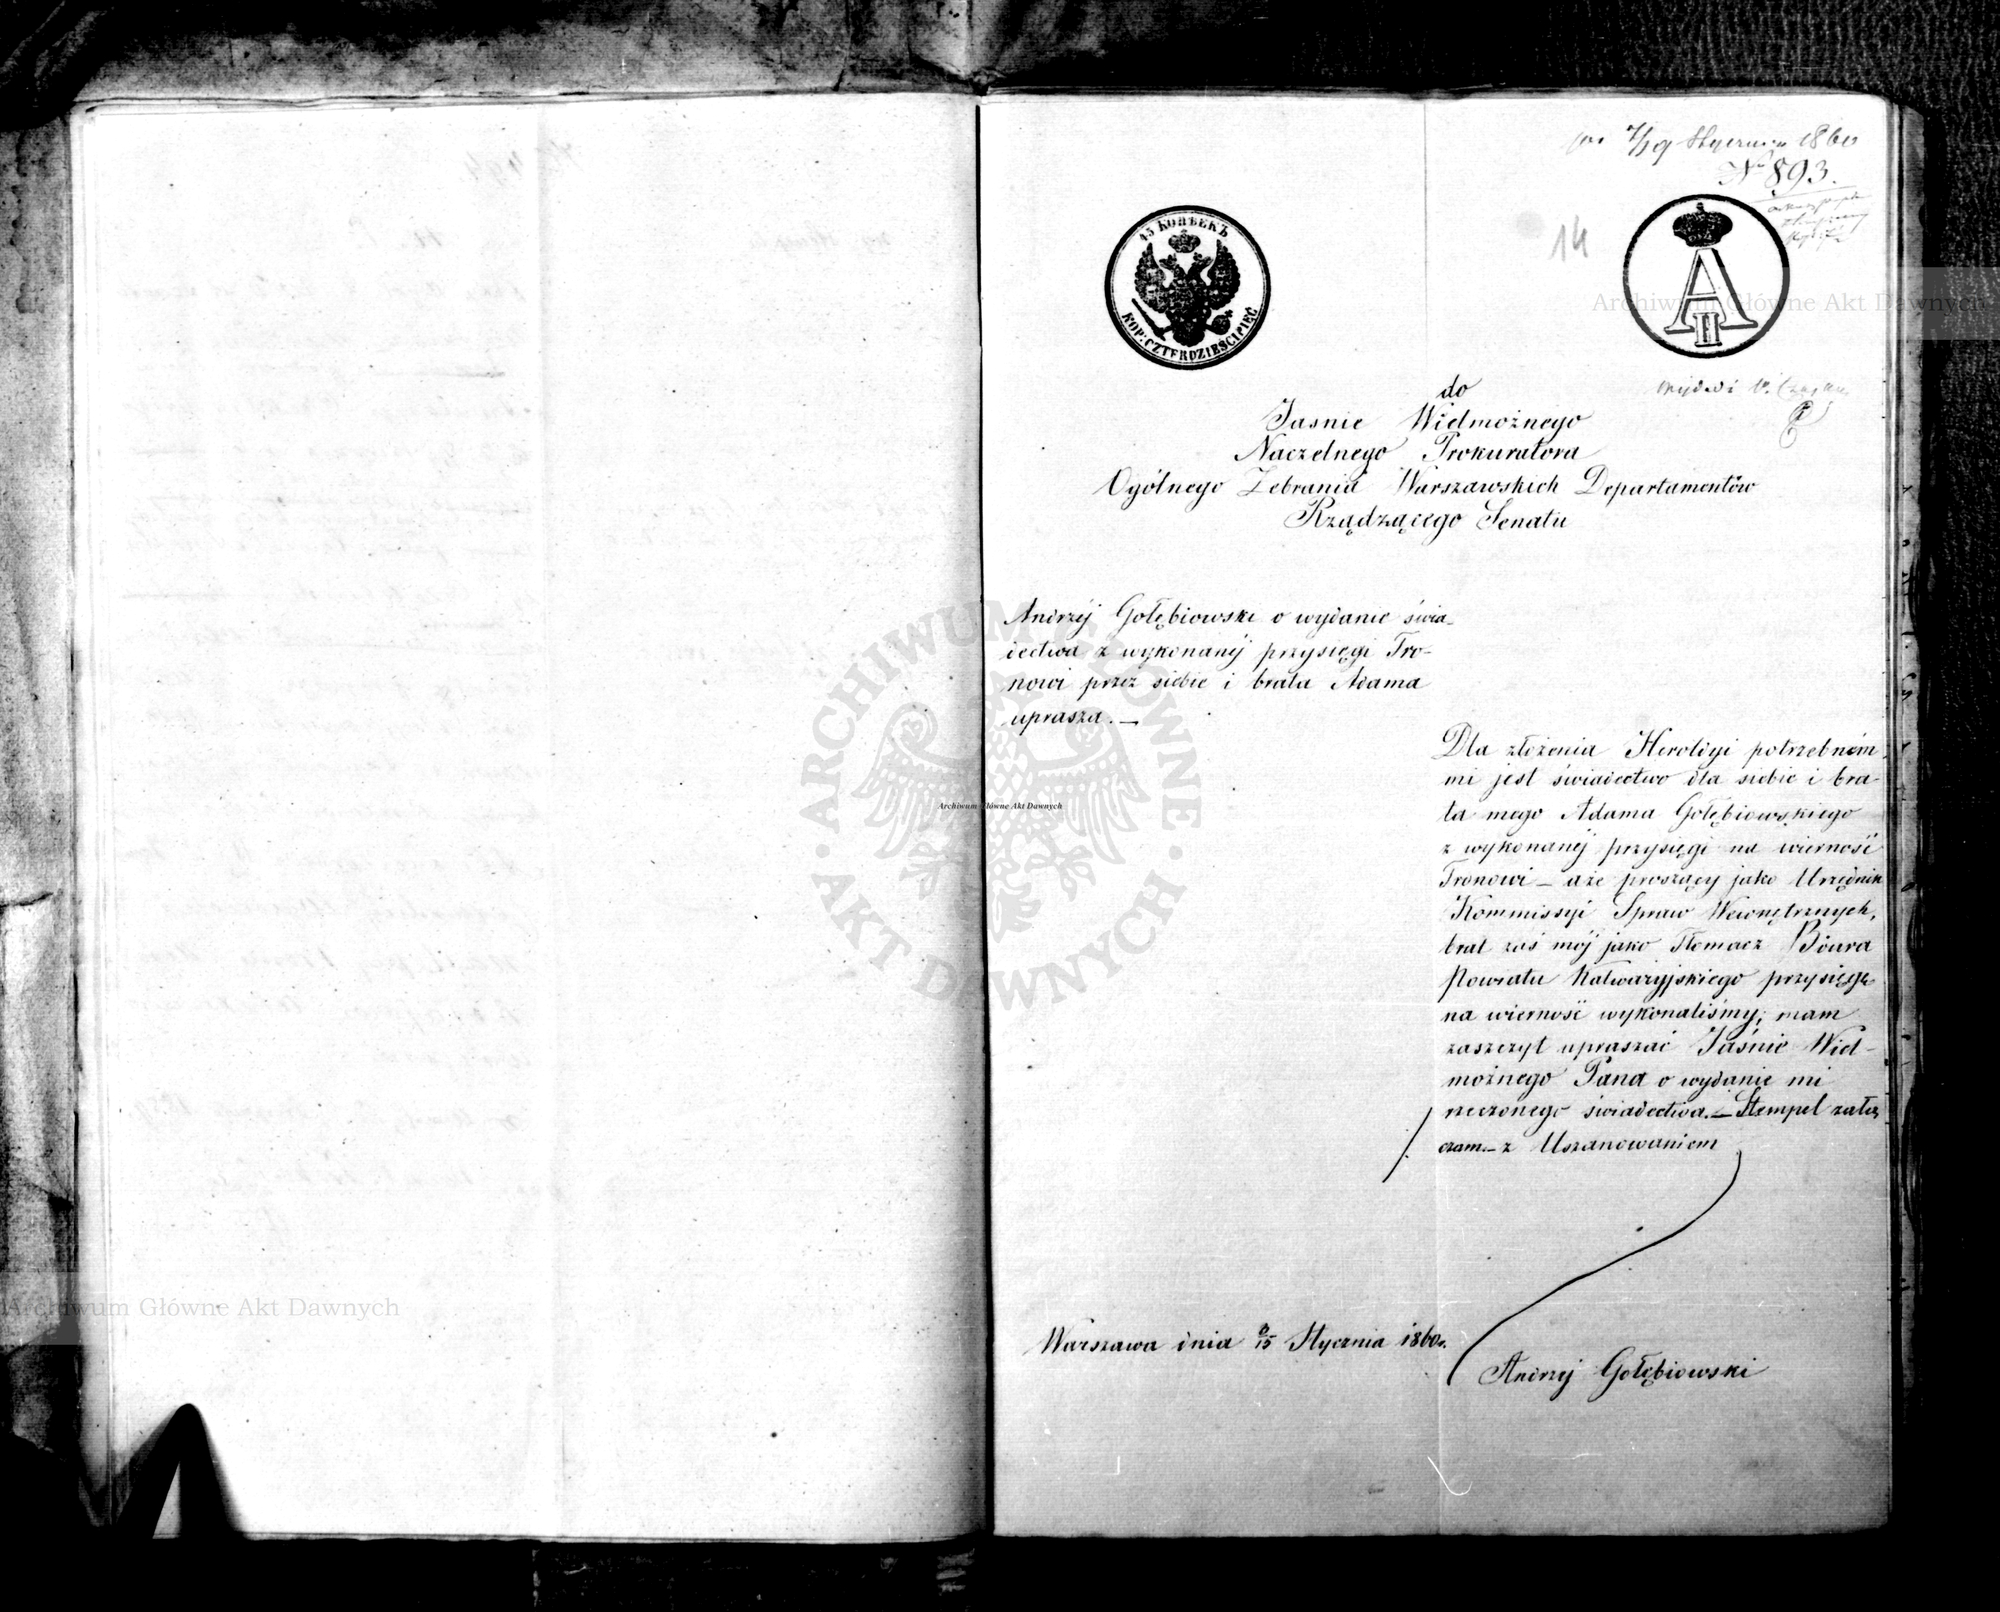 7/19 Stycznia 1860
No 893.
14
45 КОПѢЕКЪ
KOP: CZTERDZIEŚCI PIĘĆ
A II
do
Jasnie Wielmożnego
Naczelnego Prokuratora
Ogólnego Zebrania Warszawskich Departamentów
Rządzącego Senatu
Andrzéj Gołębiowski o wydanie świa-
dectwa z wykonanéj przysięgi Tro-
nowi przez siebie i brata Adama
uprasza. —
Dla złożenia Heroldyi potrzebném
mi jest świadectwo dla siebie i bra-
ta mego Adama Gołębiowskiego
z wykonanéj przysięgi na wierność
Tronowi — aże proszący jako Urzędnik
Kommissyi Spraw Wewnętrznych,
brat zaś mój jako Tłomacz Biura
Powiatu Kalwaryjskiego przysięgę
na wierność wykonaliśmy, mam
zaszczyt upraszać Jaśnie Wiel-
możnego Pana o wydanie mi
rzeczonego świadectwa. — Stempel załą-
czam — z Uszanowaniem
Warszawa dnia 3/15 Stycznia 1860 r.
Andrzej Gołębiowski
Archiwum Główne Akt Dawnych
ARCHIWUM GŁÓWNE AKT DAWNYCH
Archiwum Główne Akt Dawnych
Archiwum Główne Akt Dawnych